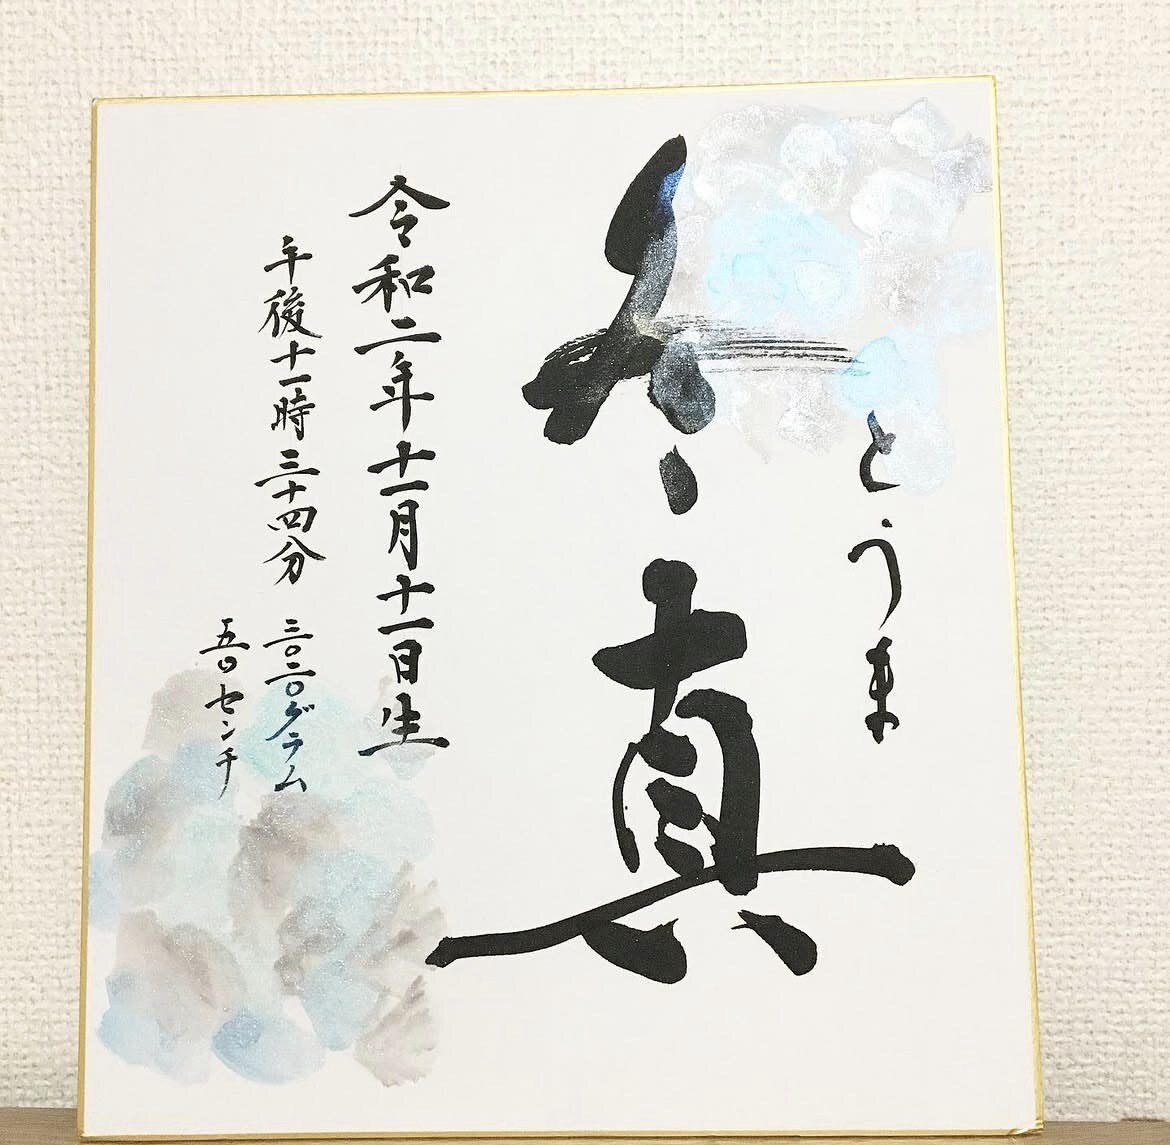 とうま
冬真
令和二年十一月十一日生
午後十一時三十四分
三〇二〇グラム
五〇センチ